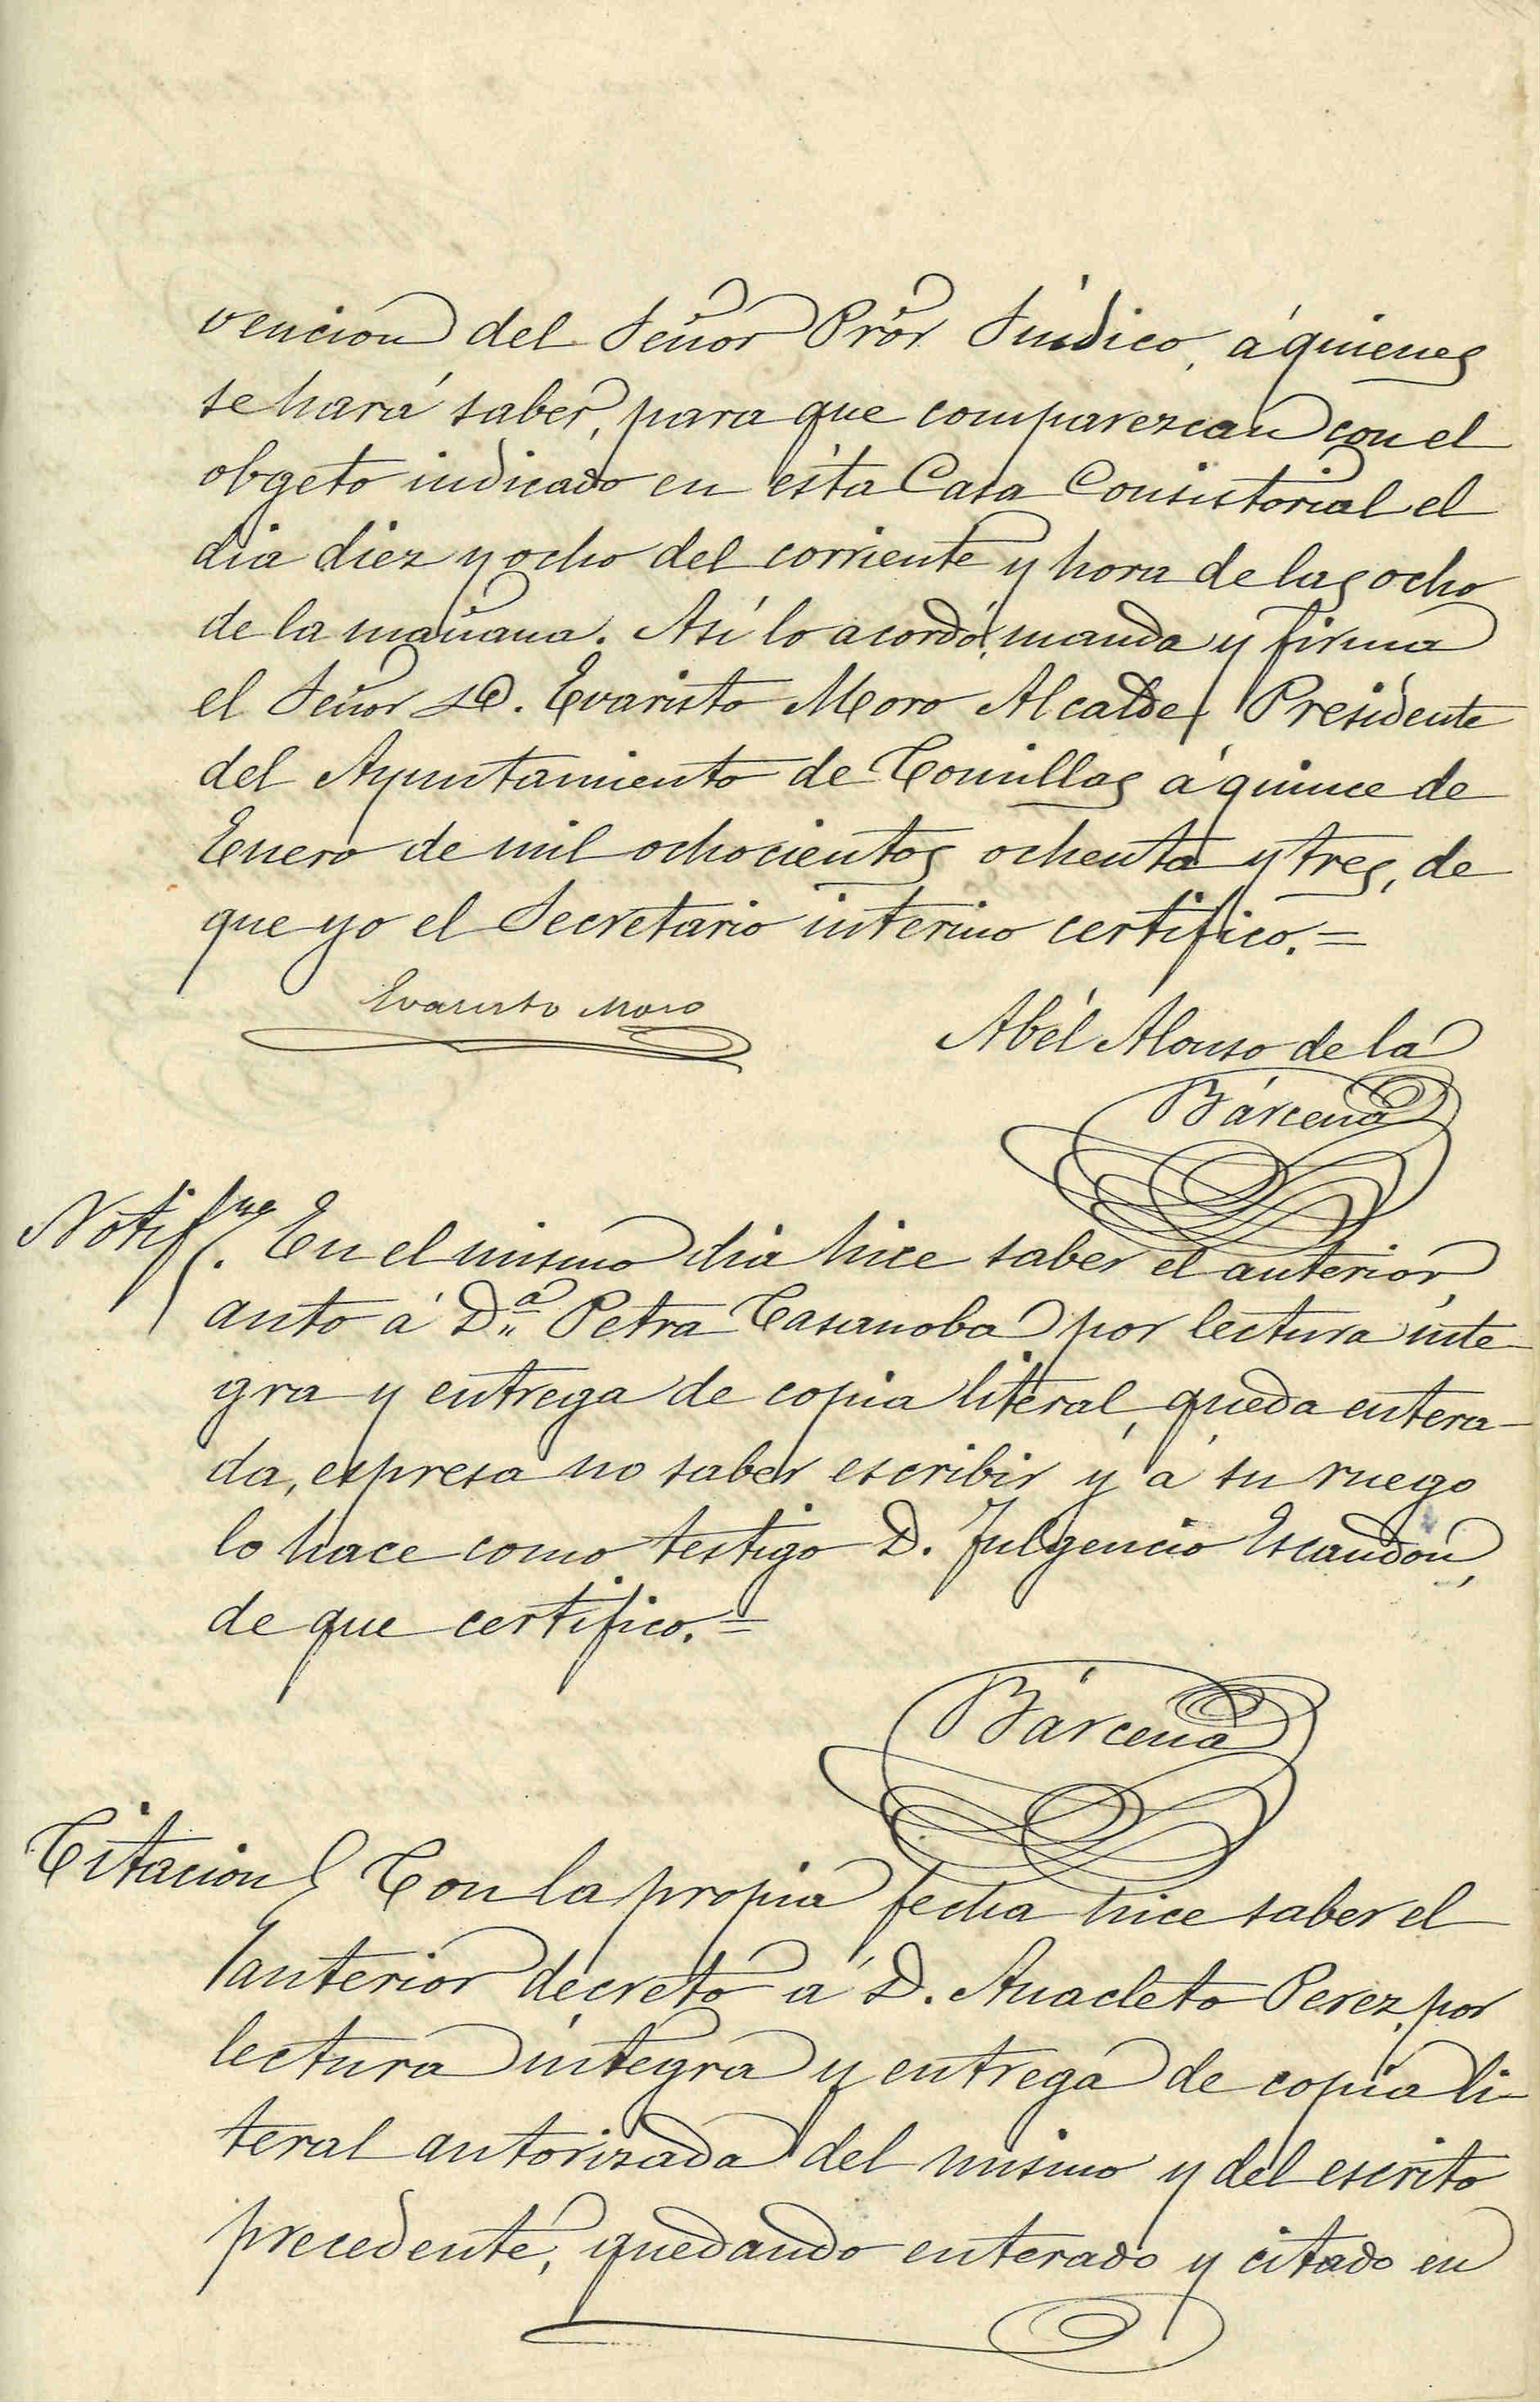 vencion del Señor Prór Sindico, á quienes
se hará saber, para que comparezcan con el
obgeto indicado en ésta Casa Consistorial el
dia diez y ocho del corriente y hora de las ocho
de la mañana. Así lo acordó, manda y firma
el Señor D. Evaristo Moro Alcalde Presidente
del Ayuntamiento de Comillas á quince de
Enero de mil ochocientos ochenta y tres, de
que yo el Secretario interino certifico.=
Evaristo Moro
Abél Alonso de la
Bárcena
Notif. En el mismo dia hice saber el anterior
auto á D.ª Petra Casanoba por lectura inte-
gra y entrega de copia literal, queda entera-
da, espresa no saber escribir y á su ruego
lo hace como testigo D. Fulgencio Escandon,
de que certifico.=
Bárcena
Citacion Con la propia fecha hice saber el
anterior decreto á D. Anacleto Perez, por
lectura íntegra y entrega de copia li-
teral autorizada del mismo y del escrito
precedente, quedando enterado y citado en